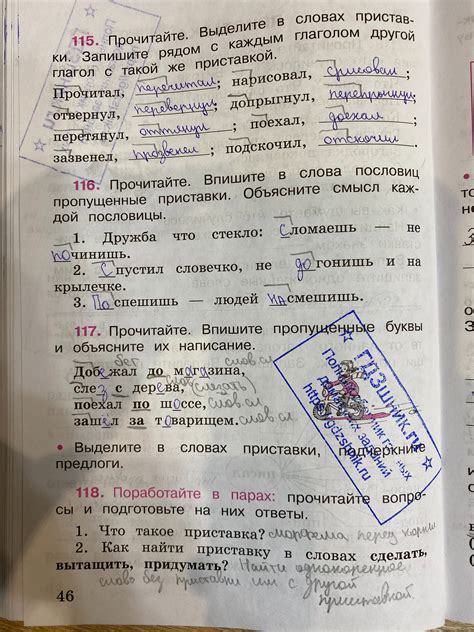 115. Прочитайте. Выделите в словах пристав-
ки. Запишите рядом с каждым глаголом другой
глагол с такой же приставкой.
Прочитал, перечитал; нарисовал, срисовал;
отвернул, перевернул; допрыгнул, перепрыгнул;
перетянул, оттянул; поехал, доехал;
зазвенел, прозвенел; подскочил, отскочил.
116. Прочитайте. Впишите в слова пословиц
пропущенные приставки. Объясните смысл каж-
дой пословицы.
1. Дружба что стекло: сломаешь — не
починишь.
2. Спустил словечко, не догонишь и на
крылечке.
3. Поспешишь — людей насмешишь.
117. Прочитайте. Впишите пропущенные буквы
и объясните их написание.
бег словсл
Добежал до магазина,
слез с дерева, (слезать)
поехал по шоссе, словсл
зашёл за товарищем. словсл
• Выделите в словах приставки, подчеркните
предлоги.
118. Поработайте в парах: прочитайте вопро-
сы и подготовьте на них ответы.
1. Что такое приставка? морфема перед корнем
2. Как найти приставку в словах сделать,
вытащить, придумать? Найти однокоренное
слово без приставки или с другой
приставкой.
46
ГДЗШНИК.RU
Полный сборник готовых
домашних заданий
http://gdzshnik.ru